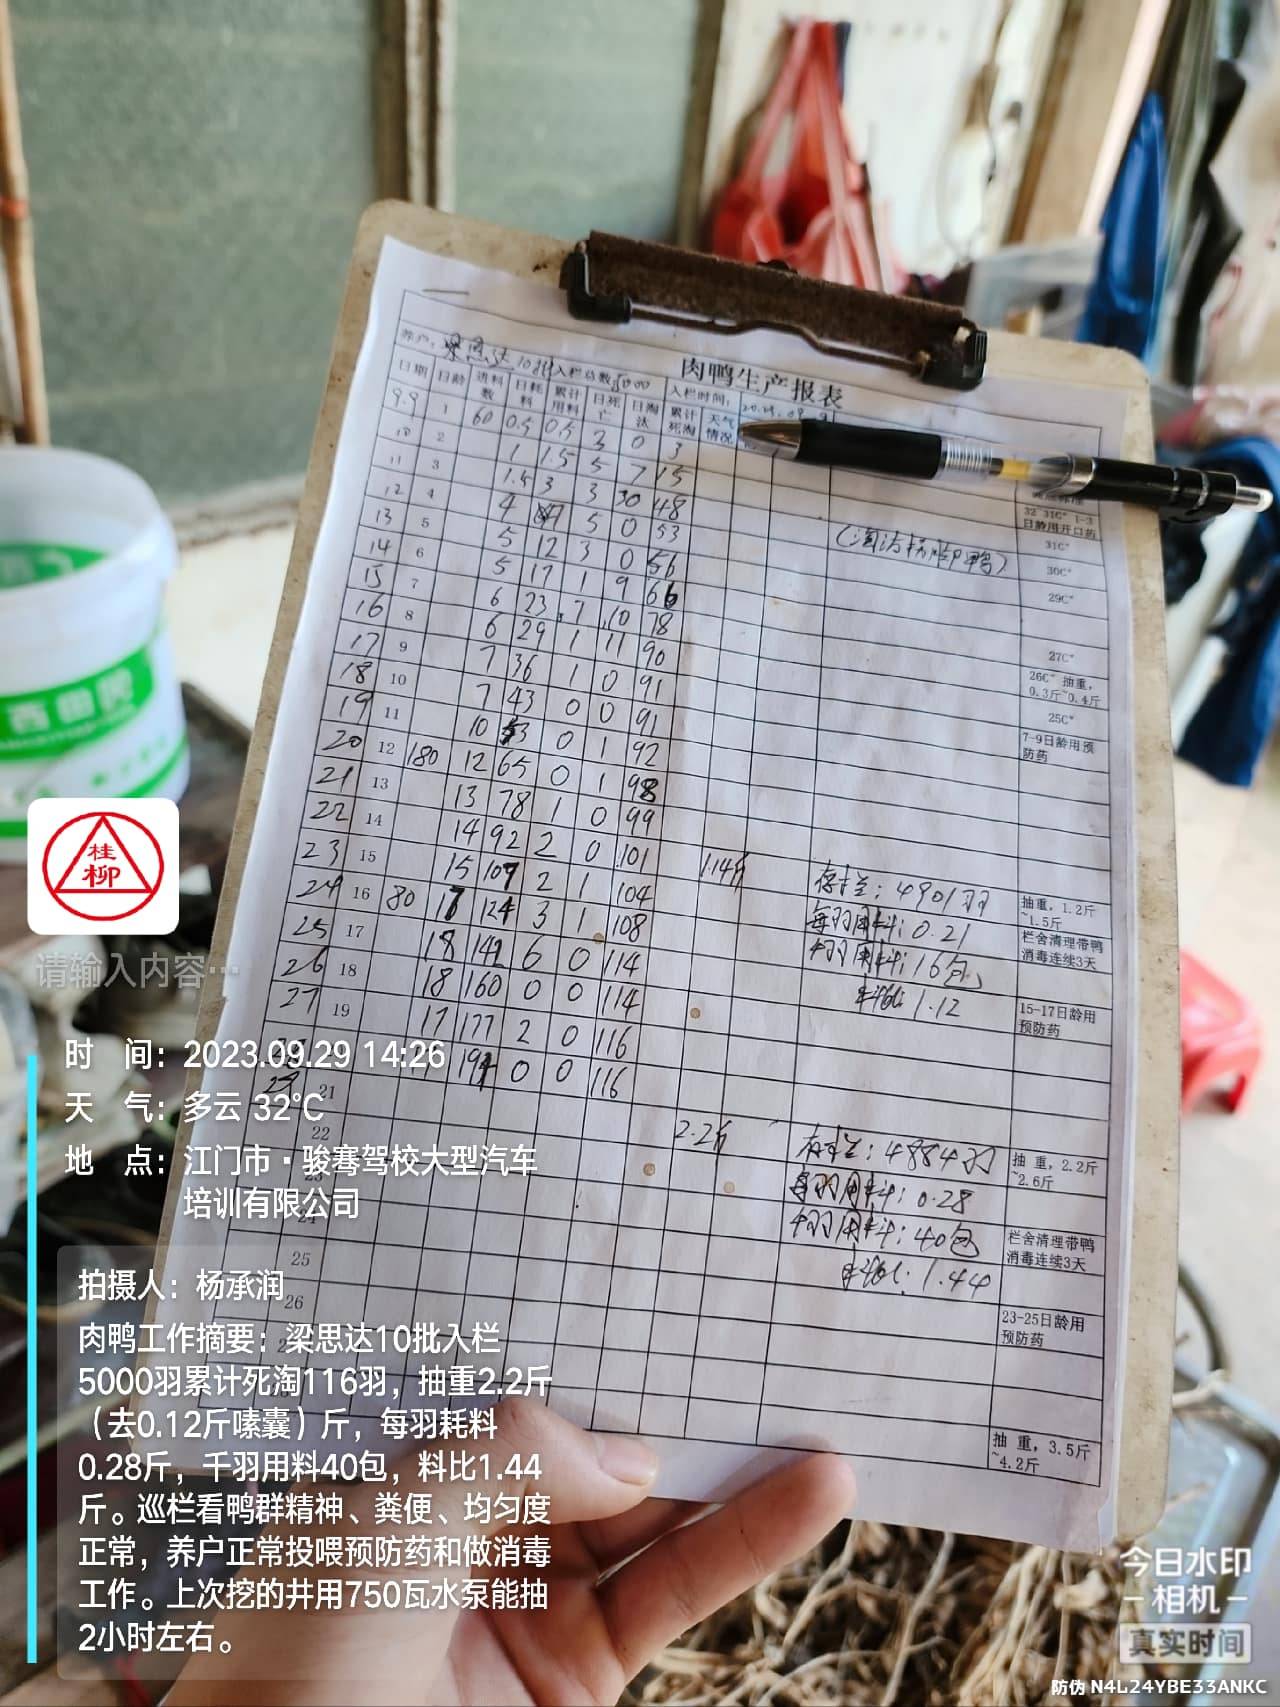 肉鸭生产报表
养户：梁思达10批 入栏总数5000 入栏时间：
日期 日龄 进料数 日耗料 累计用料 日死亡 日淘汰 累计死淘 天气情况
9.9 1 60 0.5 0.5 3 0 3
10 2 1 1.5 5 7 15
32 31C° 1-3日龄用开口药
11 3 1.5 3 3 30 48
31C°
12 4 4 5 0 53 (淘汰 脚鸭)
30C°
13 5 5 12 3 0 56
29C°
14 6 5 17 1 9 66
15 7 6 23 7 10 78
27C°
16 8 6 29 1 11 90
26C° 抽重，0.3斤~0.4斤
17 9 7 36 1 0 91
25C°
18 10 7 43 0 0 91
7-9日龄用预防药
19 11 10 53 0 1 92
20 12 180 12 65 0 1 98
21 13 13 78 1 0 99
22 14 14 92 2 0 101
23 15 15 107 2 1 104 1.14斤 存栏：4901羽
抽重，1.2斤~1.5斤
24 16 80 17 124 3 1 108 每羽用料：0.21
栏舍清理带鸭消毒连续3天
25 17 18 142 6 0 114 千羽用料：16包
26 18 18 160 0 0 114 料比 1.12
15-17日龄用预防药
27 19 17 177 2 0 116
28 194 0 0 116
29 21
22 2.2斤 存栏：4884羽
抽 重，2.2斤~2.6斤
23 每羽用料：0.28
24 千羽用料：40包
栏舍清理带鸭消毒连续3天
25 料比：1.44
26
23-25日龄用预防药
抽 重，3.5斤~4.2斤
桂柳
请输入内容…
时 间：2023.09.29 14:26
天 气：多云 32℃
地 点：江门市·骏骞驾校大型汽车
培训有限公司
拍摄人：杨承润
肉鸭工作摘要：梁思达10批入栏
5000羽累计死淘116羽，抽重2.2斤
（去0.12斤嗉囊）斤，每羽耗料
0.28斤，千羽用料40包，料比1.44
斤。巡栏看鸭群精神、粪便、均匀度
正常，养户正常投喂预防药和做消毒
工作。上次挖的井用750瓦水泵能抽
2小时左右。
今日水印
相机
真实时间
防伪 N4L24YBE33ANKC